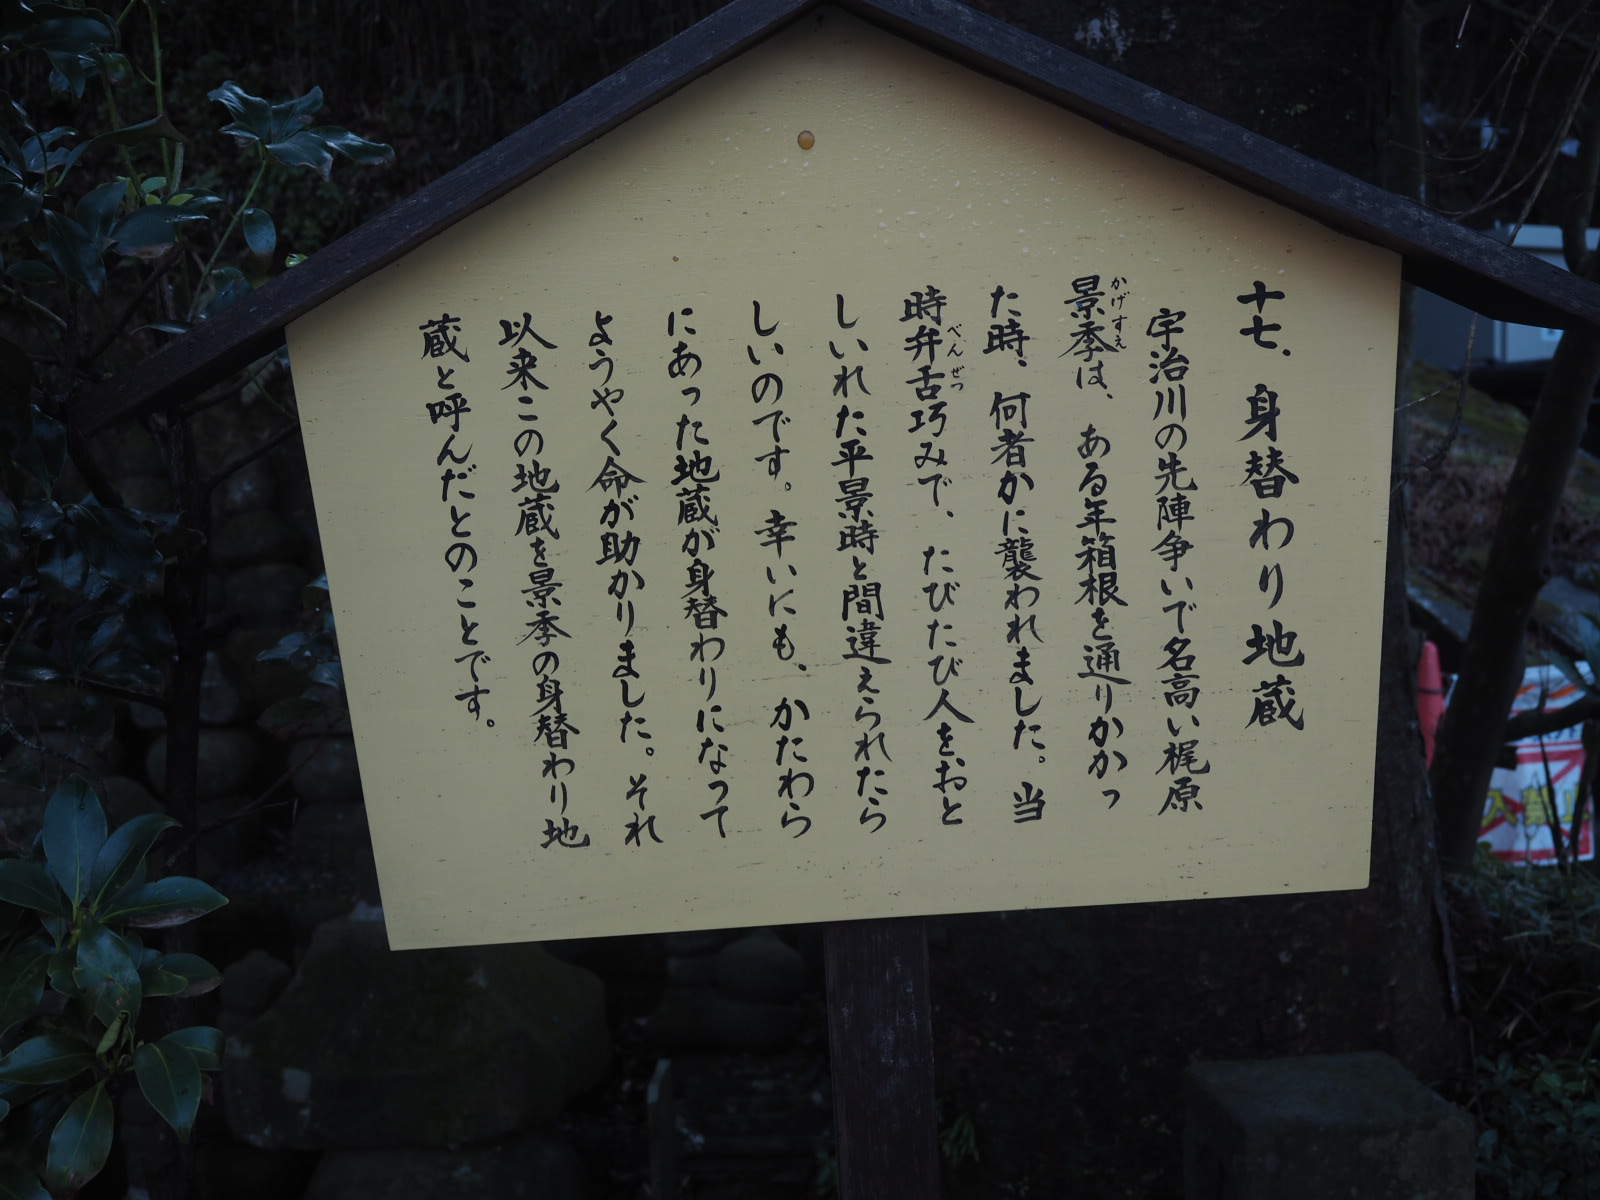 十七、身替わり地蔵
宇治川の先陣争いで名高い梶原
景季は、ある年箱根を通りかかっ
かげすえ
た時、何者かに襲われました。当
時弁舌巧みで、たびたび人をおと
べんぜつ
しいれた平景時と間違えられたら
しいのです。幸いにも、かたわら
にあった地蔵が身替わりになって
ようやく命が助かりました。それ
以来この地蔵を景季の身替わり地
蔵と呼んだとのことです。